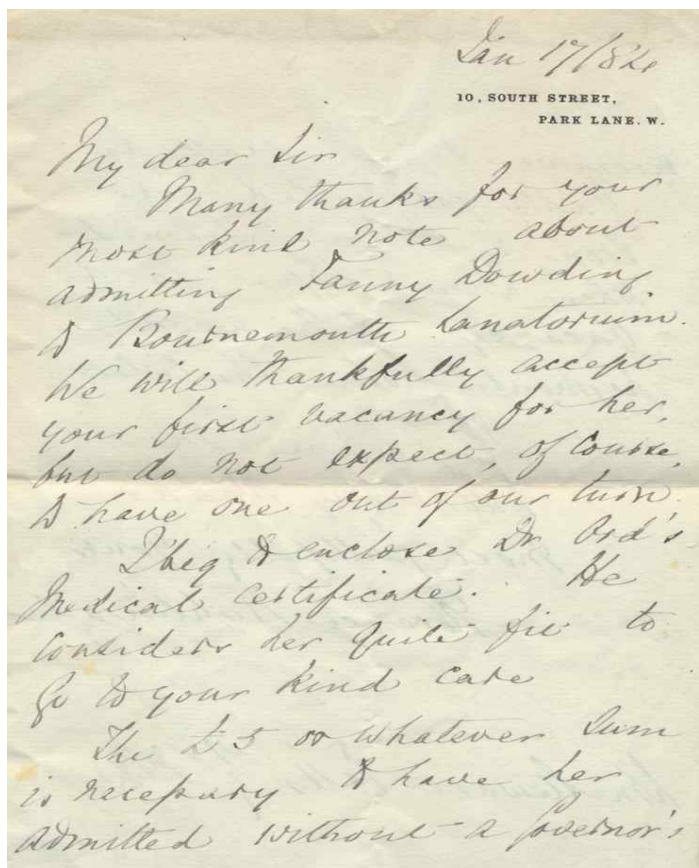 Jan 17/84
10, SOUTH STREET,
PARK LANE. W.
My dear Sir
Many thanks for your
most kind note about
admitting Fanny Dowding
to Bournemouth Sanatorium.
We will thankfully accept
your first vacancy for her,
but do not expect, of course,
to have one out of our turn.
I beg to enclose Dr. Ord's
Medical Certificate. He
considers her quite fit to
go to your kind care
The £5 or whatever sum
is necessary to have her
admitted without a Governor's